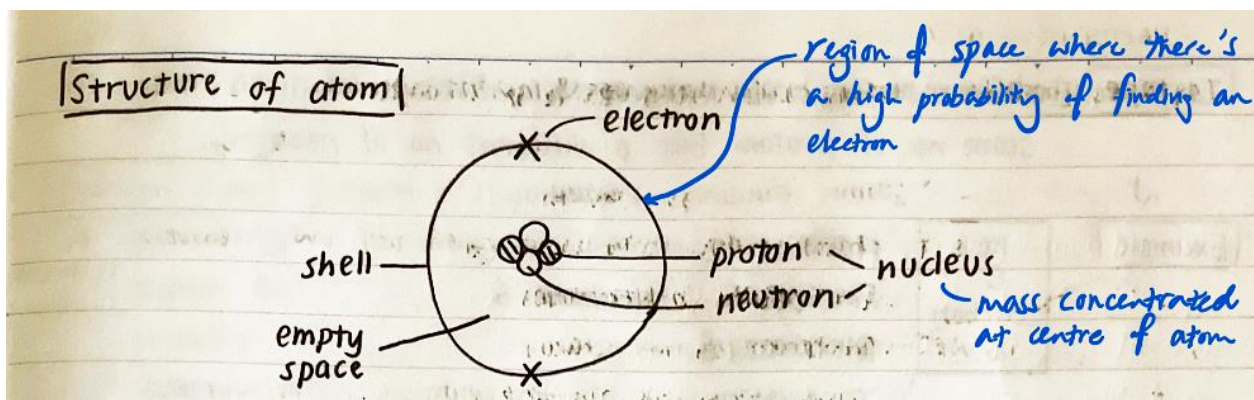 Structure of atom
region of space where there's
a high probability of finding an
electron
electron
shell
proton
neutron
nucleus
empty
space
mass concentrated
at centre of atom